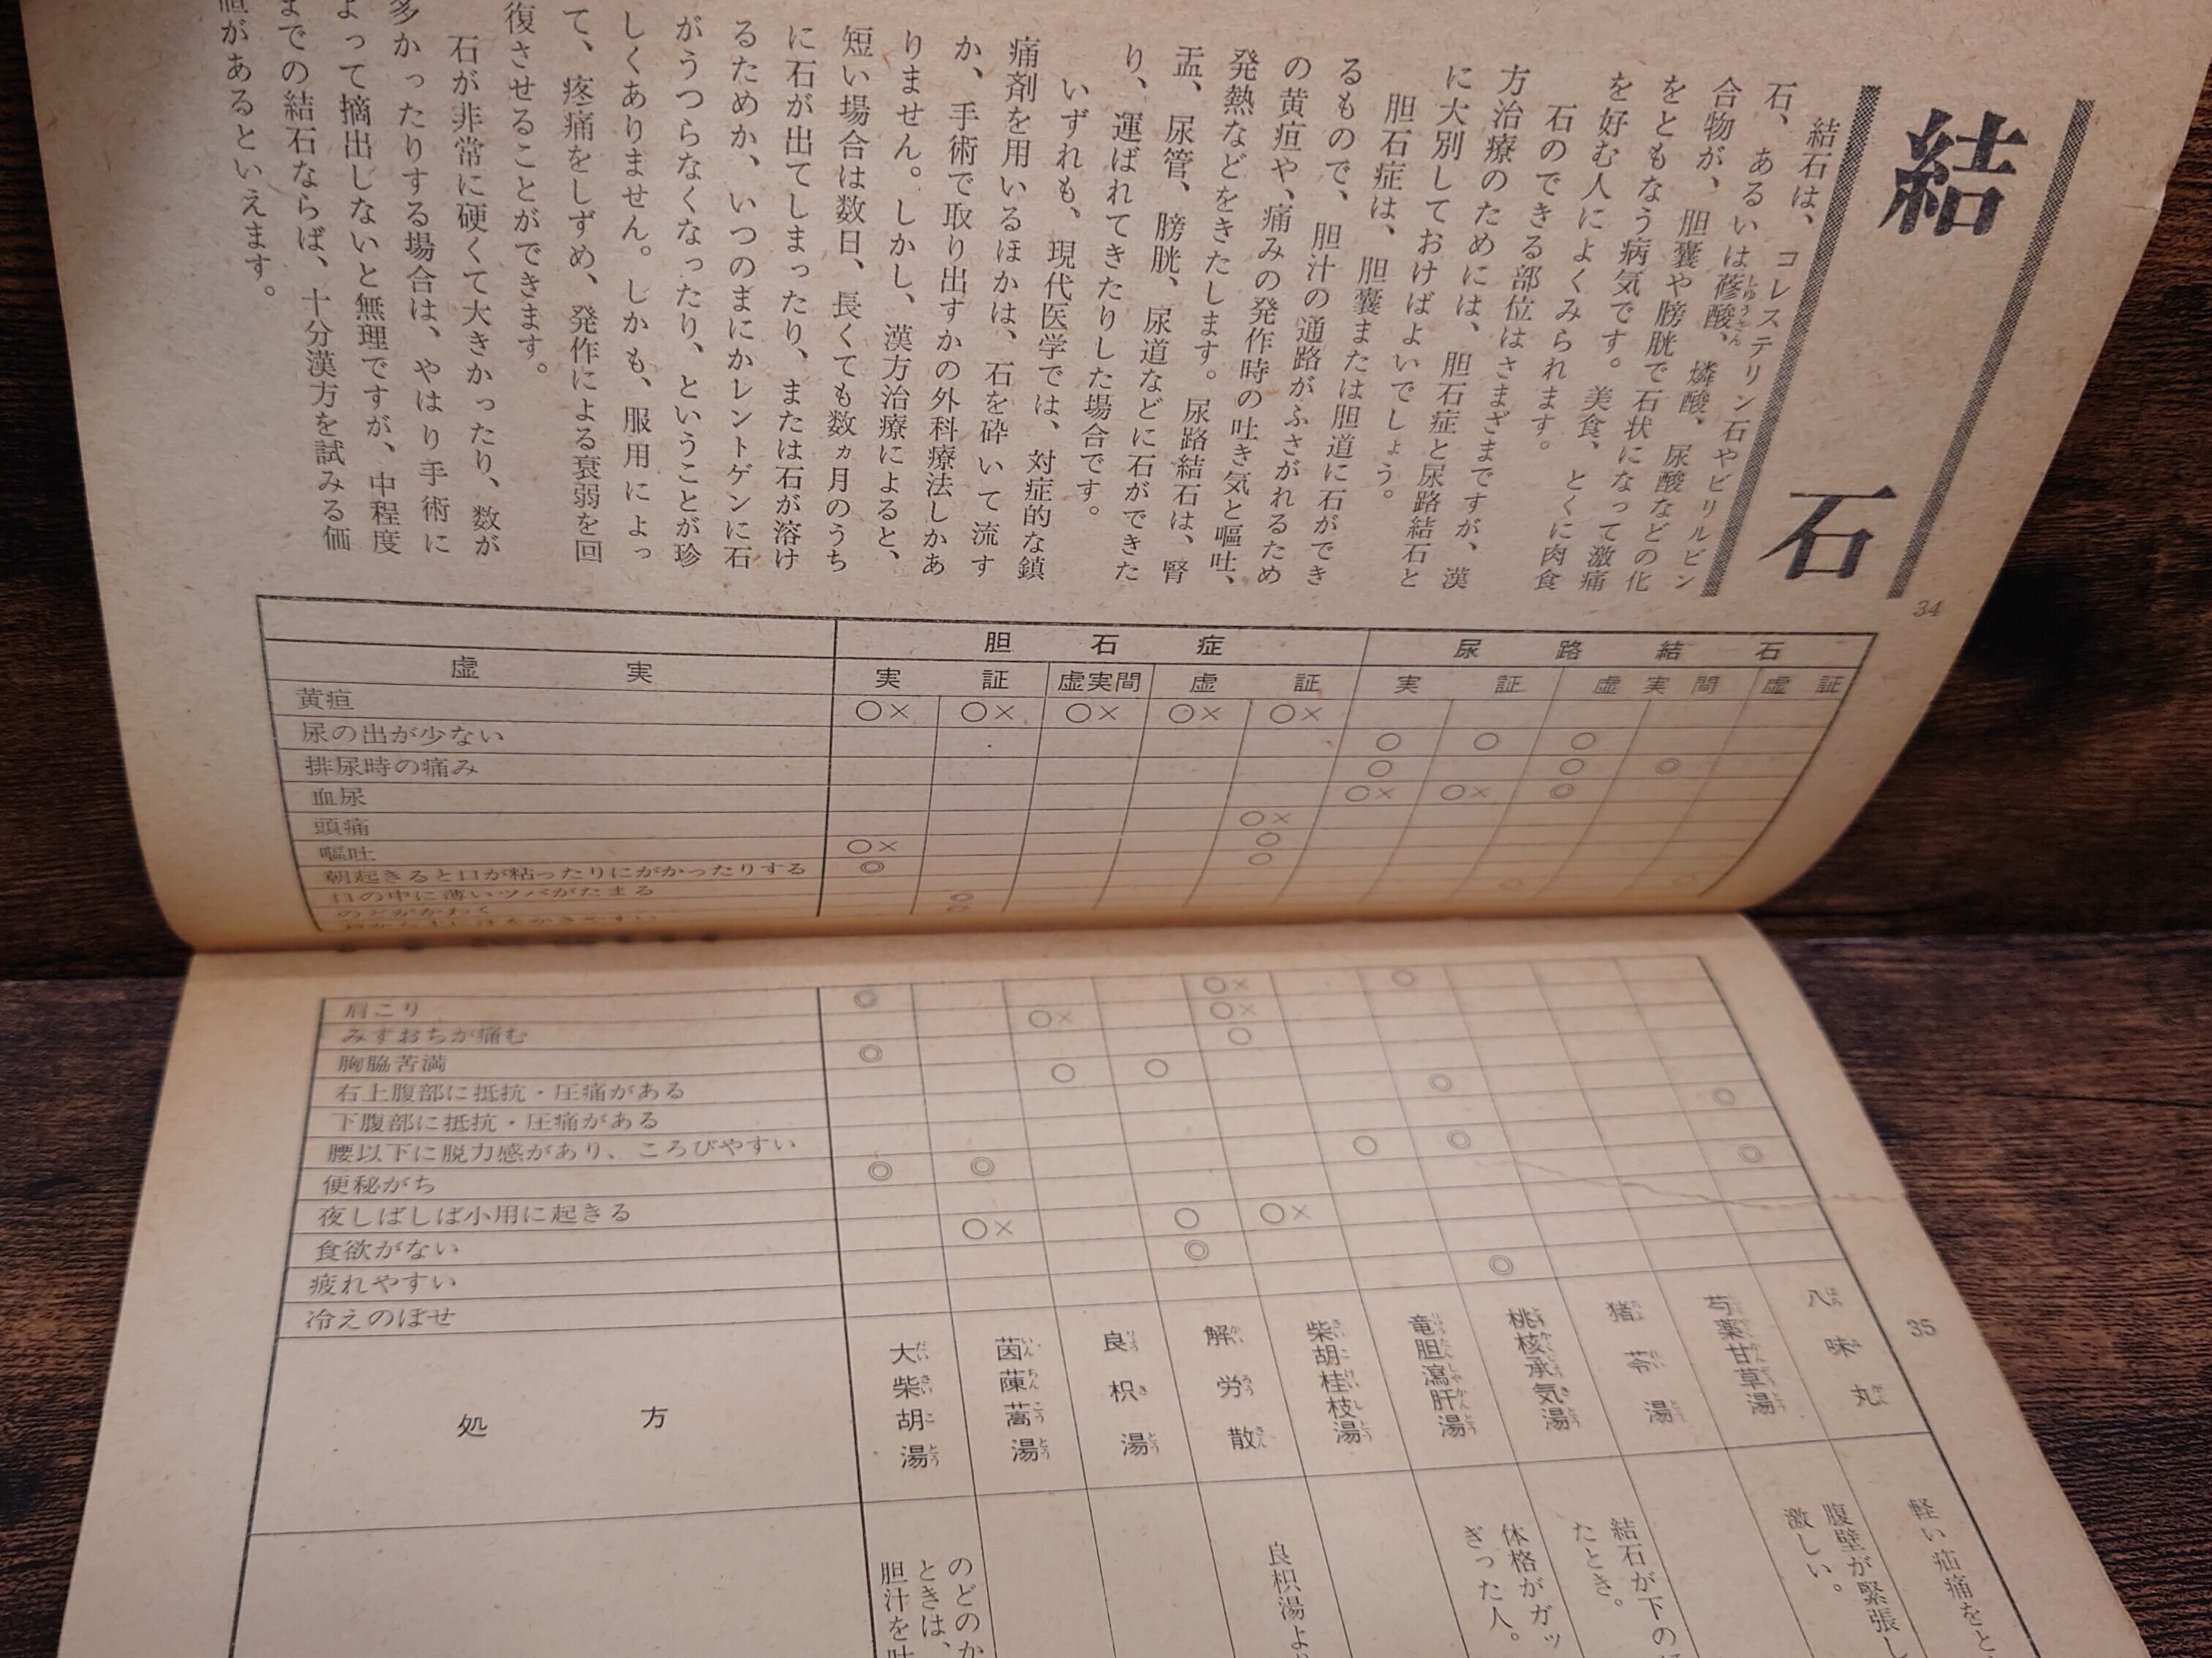 結石
34
結石は、コレステリン石やビリルビン
石、あるいは蓚酸、燐酸、尿酸などの化
しゅうさん
合物が、胆嚢や膀胱で石状になって激痛
をともなう病気です。美食、とくに肉食
を好む人によくみられます。
石のできる部位はさまざまですが、漢
方治療のためには、胆石症と尿路結石と
に大別しておけばよいでしょう。
胆石症は、胆嚢または胆道に石ができ
るもので、胆汁の通路がふさがれるため
の黄疸や、痛みの発作時の吐き気と嘔吐、
発熱などをきたします。尿路結石は、腎
盂、尿管、膀胱、尿道などに石ができた
り、運ばれてきたりした場合です。
いずれも、現代医学では、対症的な鎮
痛剤を用いるほかは、石を砕いて流す
か、手術で取り出すかの外科療法しかあ
りません。しかし、漢方治療によると、
短い場合は数日、長くても数ヵ月のうち
に石が出てしまったり、または石が溶け
るためか、いつのまにかレントゲンに石
がうつらなくなったり、ということが珍
しくありません。しかも、服用によっ
て、疼痛をしずめ、発作による衰弱を回
復させることができます。
石が非常に硬くて大きかったり、数が
多かったりする場合は、やはり手術に
よって摘出しないと無理ですが、中程度
までの結石ならば、十分漢方を試みる価
値があるといえます。
胆石症 尿路結石
虚実 実証 虚実間 虚証 実証 虚実間 虚証
黄疸 ○× ○× ○× ○× ○×
尿の出が少ない ○ ○ ○
排尿時の痛み ○ ○ ◎
血尿 ○× ○× ◎
頭痛 ○×
嘔吐 ○× ○
朝起きると口が粘ったりにがかったりする ◎ ○
口の中に薄いツバがたまる
のどがかわく
肩こり
みずおちが痛む
胸脇苦満
右上腹部に抵抗・圧痛がある
下腹部に抵抗・圧痛がある
腰以下に脱力感があり、ころびやすい
便秘がち
夜しばしば小用に起きる
食欲がない
疲れやすい
冷えのぼせ
処方
大柴胡湯
だいさいことう
茵蔯蒿湯
いんちんこうとう
良枳湯
りょうきとう
解労散
かいろうさん
柴胡桂枝湯
さいこけいしとう
竜胆瀉肝湯
りゅうたんしゃかんとう
桃核承気湯
猪苓湯
芍薬甘草湯
八味丸
35
のどのか
ときは、
胆汁を吐
良枳湯よ
体格がガッ
ぎった人。
結石が下の
たとき。
腹壁が緊張し
激しい。
軽い疝痛をと